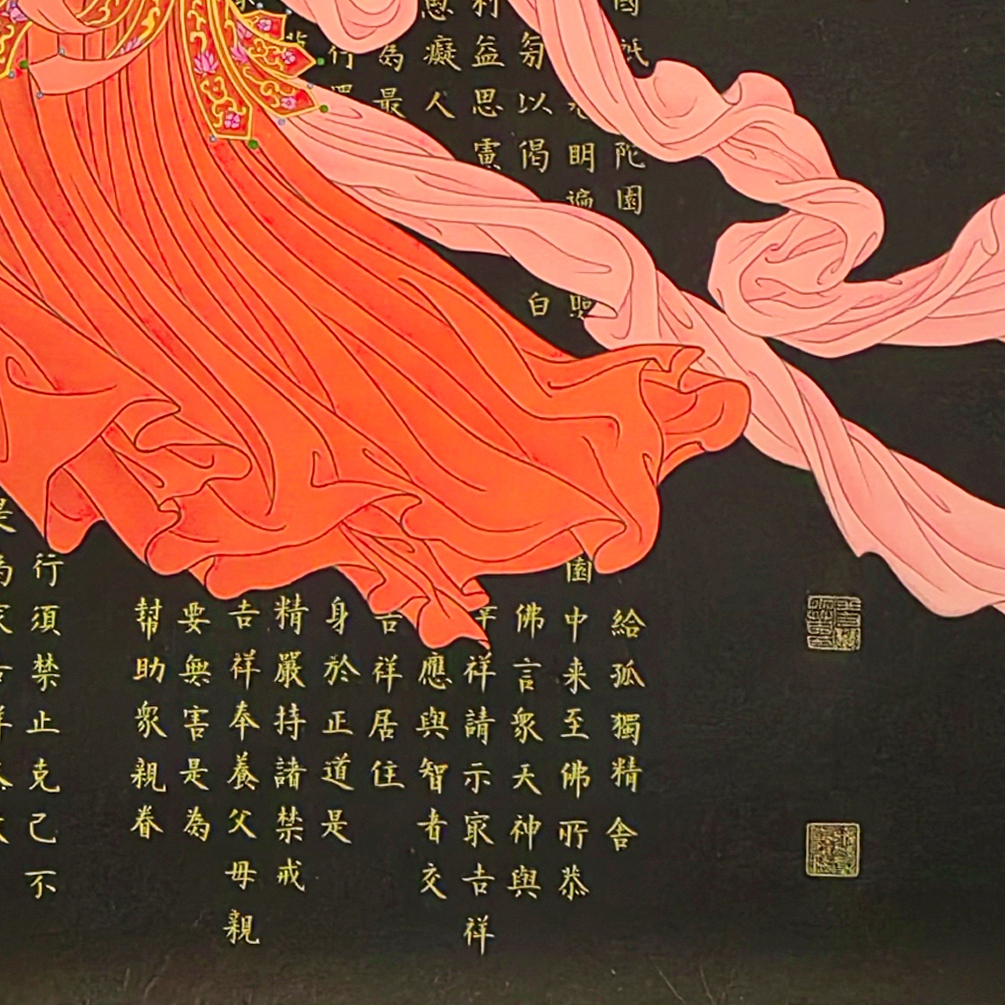 國祇陀園給孤獨精舍
明遍照園中来至佛所恭
氛以偈白佛言衆天神與
利益思慮祥請示家吉祥
癡人應與智者交
為最吉祥居住
行身於正道是
精嚴持諸禁戒
吉祥奉養父母親
要無害是為
幫助衆親眷
行須禁止克己不
是